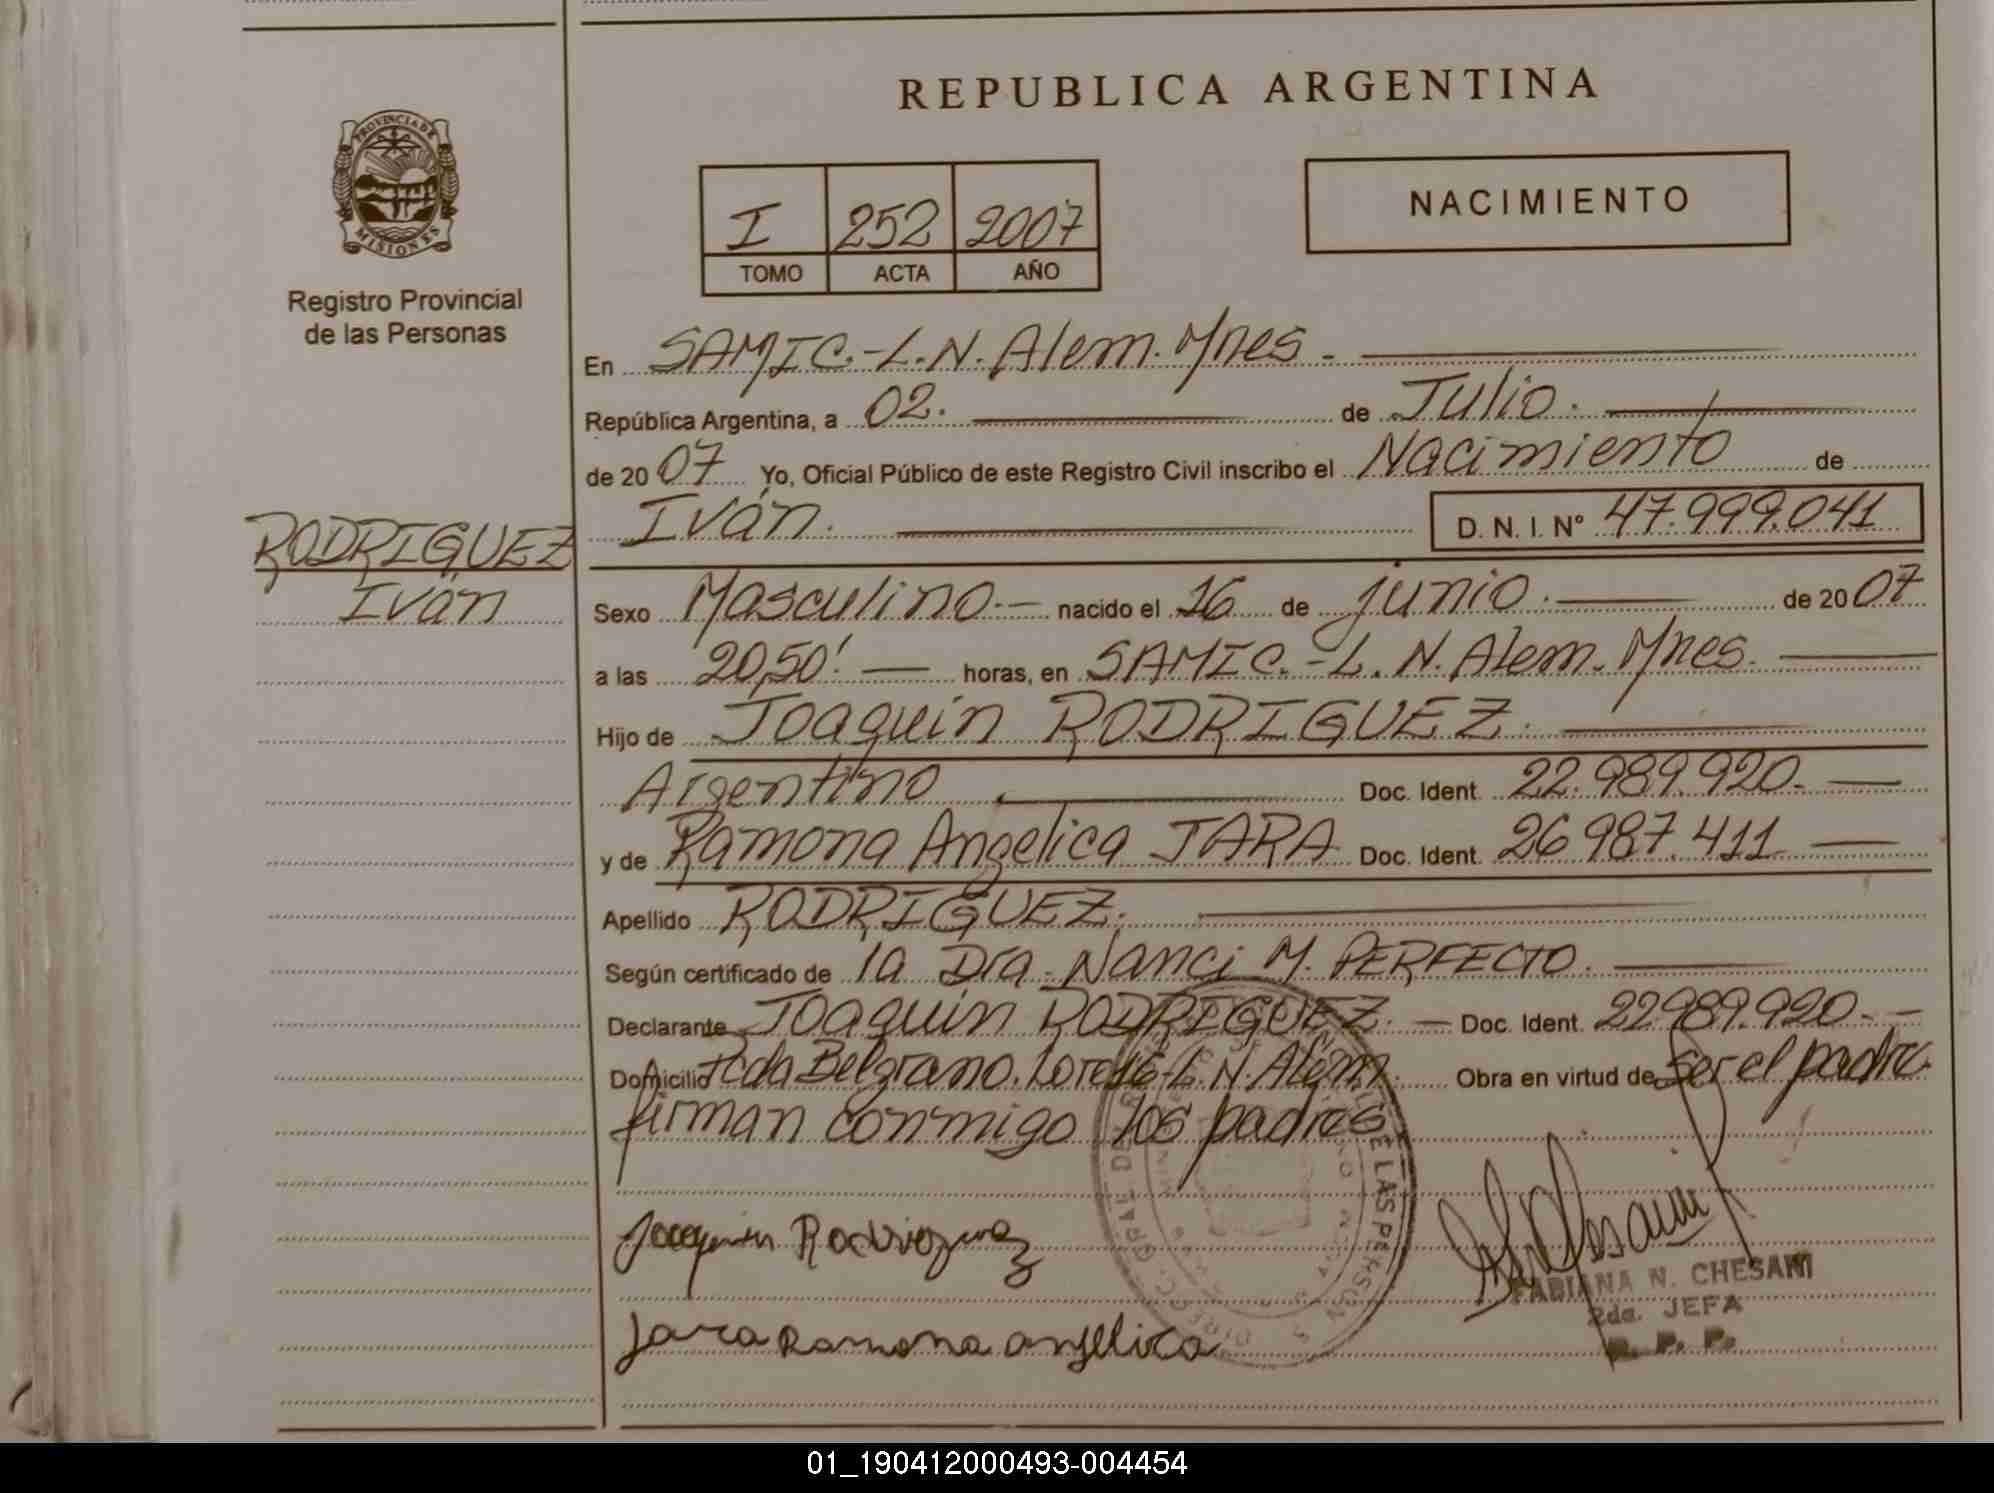 REPUBLICA ARGENTINA
PROVINCIA DE
MISIONES
Registro Provincial
de las Personas
I 252 2007
TOMO ACTA AÑO
NACIMIENTO
En SAMIC.-L.N.Alem.Mnes.
República Argentina, a 02. de Julio.
de 2007 Yo, Oficial Público de este Registro Civil inscribo el Nacimiento de
Iván. D. N. I. Nº 47.999.041
RODRIGUEZ
Iván
Sexo Masculino.- nacido el 16 de junio. de 2007
a las 20,50' horas, en SAMIC.-L.N.Alem.Mnes.
Hijo de Joaquin RODRIGUEZ.
Argentino Doc. Ident. 22.989.920.
y de Ramona Angelica JARA Doc. Ident. 26.987.411
Apellido RODRIGUEZ.
Según certificado de la Dra. Nanci M. PERFECTO.
Declarante Joaquin RODRIGUEZ. Doc. Ident. 22.989.920.
Domicilio Belgrano. L.N.Alem. Obra en virtud de ser el padre.
firman conmigo los padres
Joaquin Rodriguez
Jara Ramona angelica
FABIANA N. CHESANI
2da. JEFA
R. P. P.
01_190412000493-004454